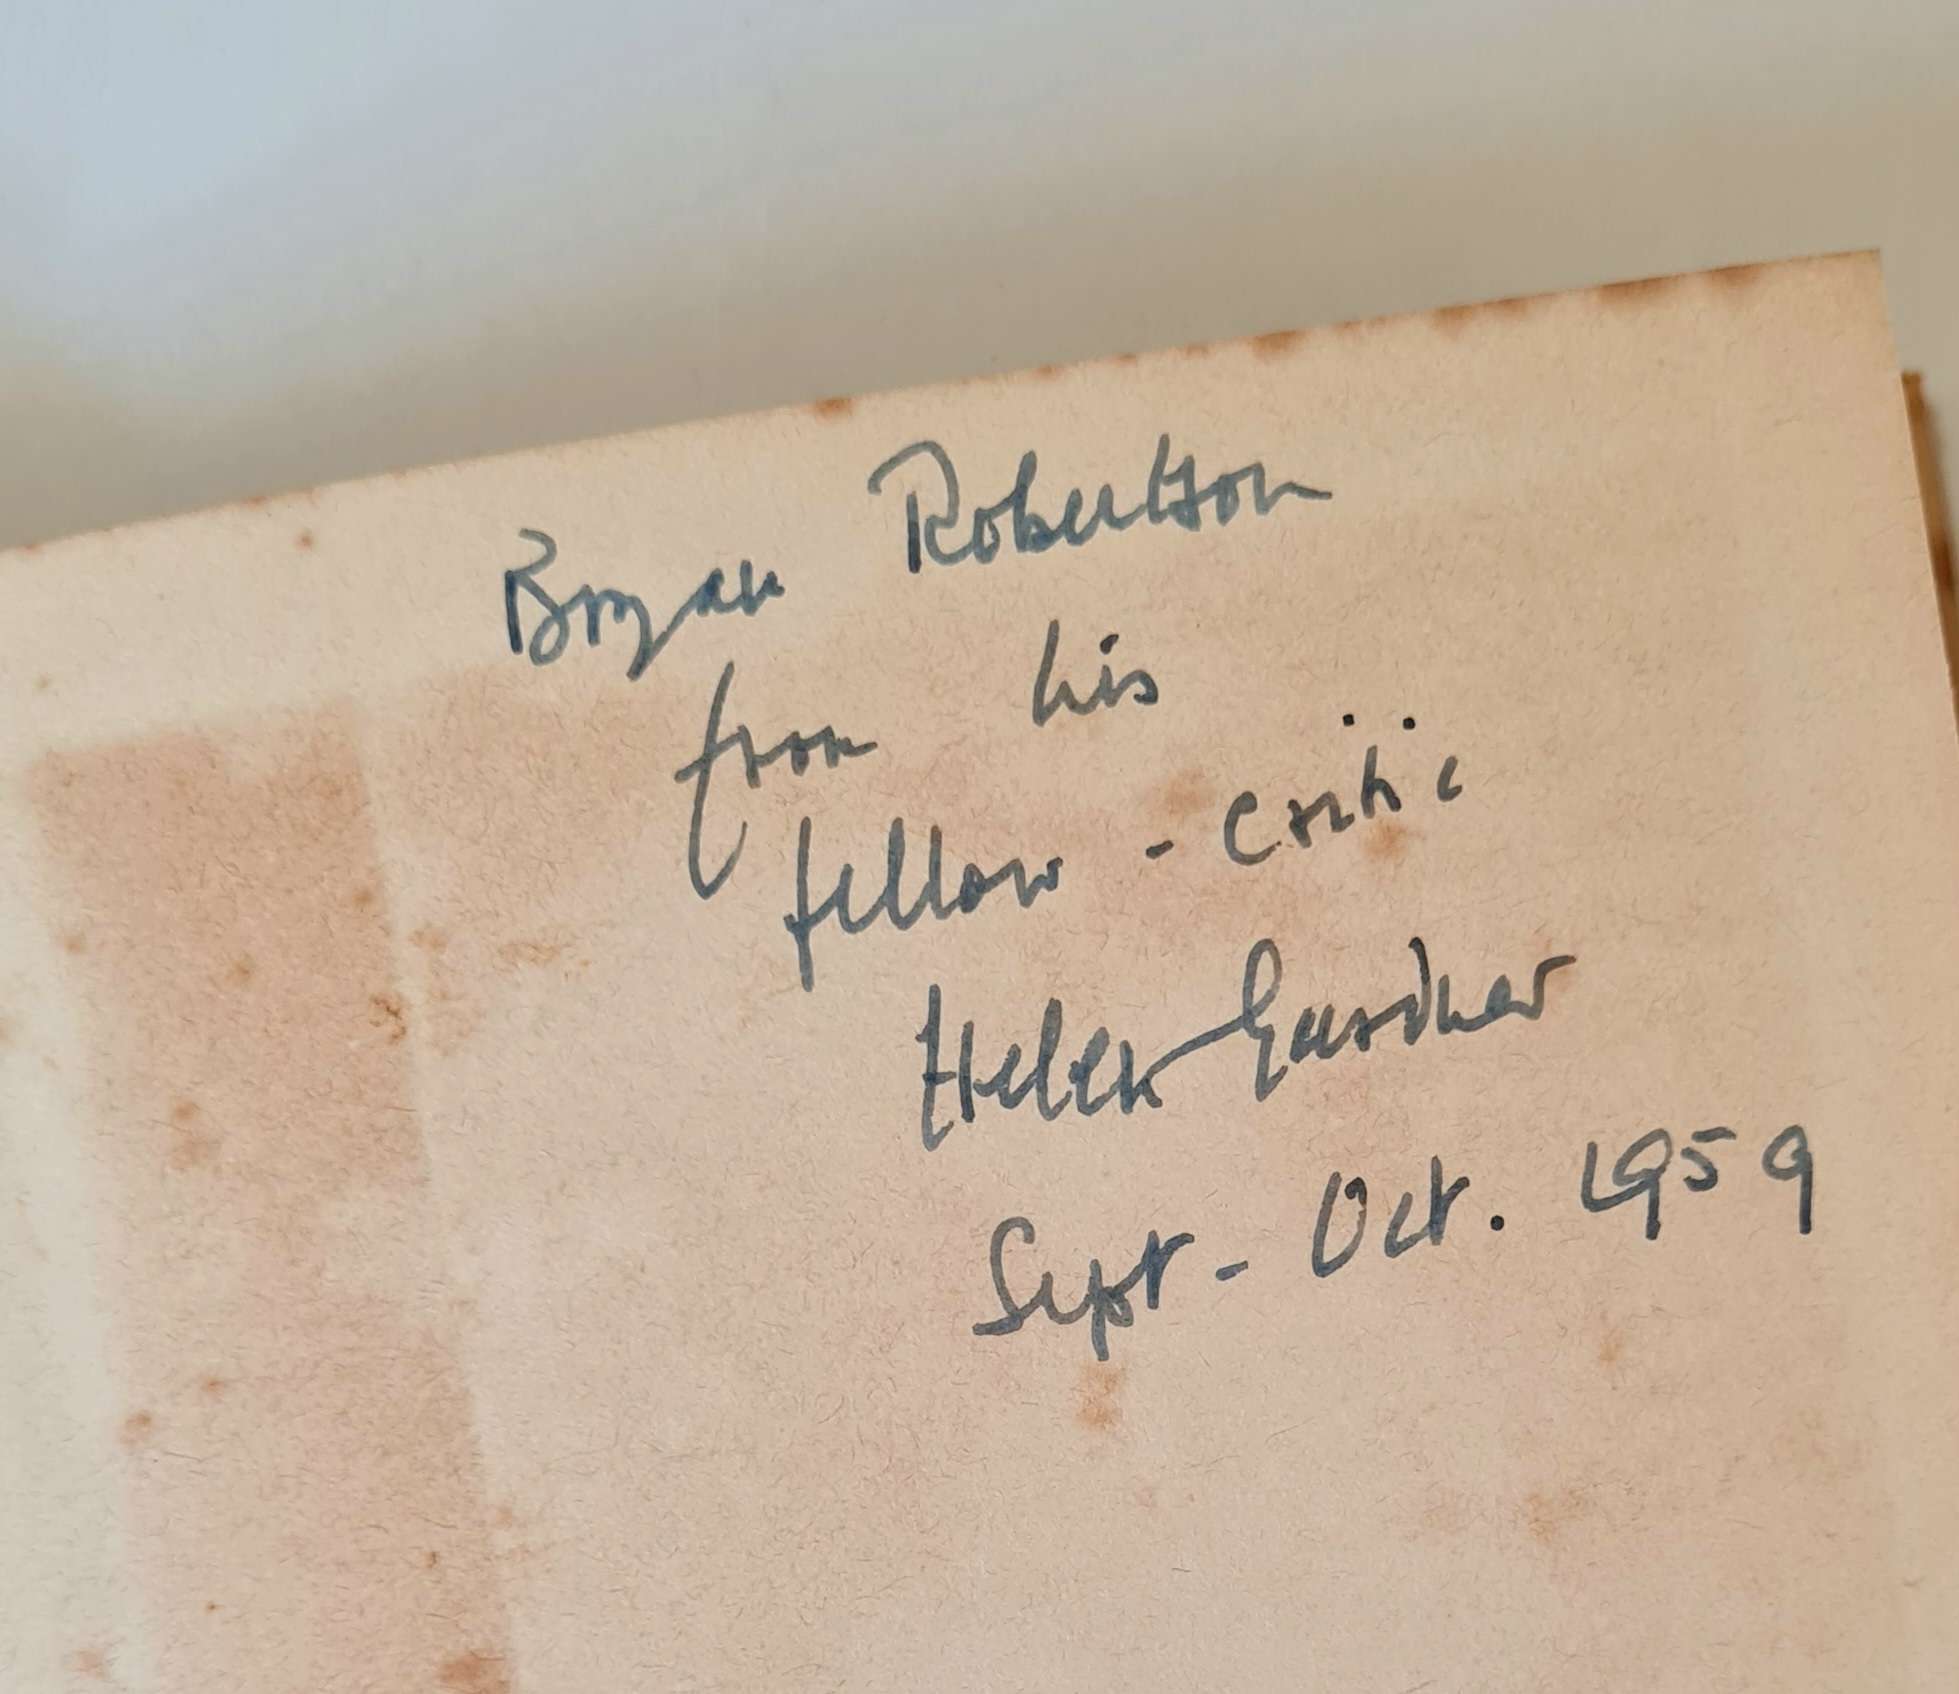 Bryan Robertson
from his
fellow - critic
Helen Gardner
Sept - Oct. 1959